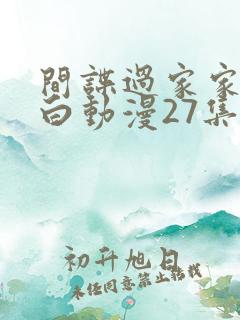 間諜過家家
白動漫27集
初升旭日
未經同意禁止轉載